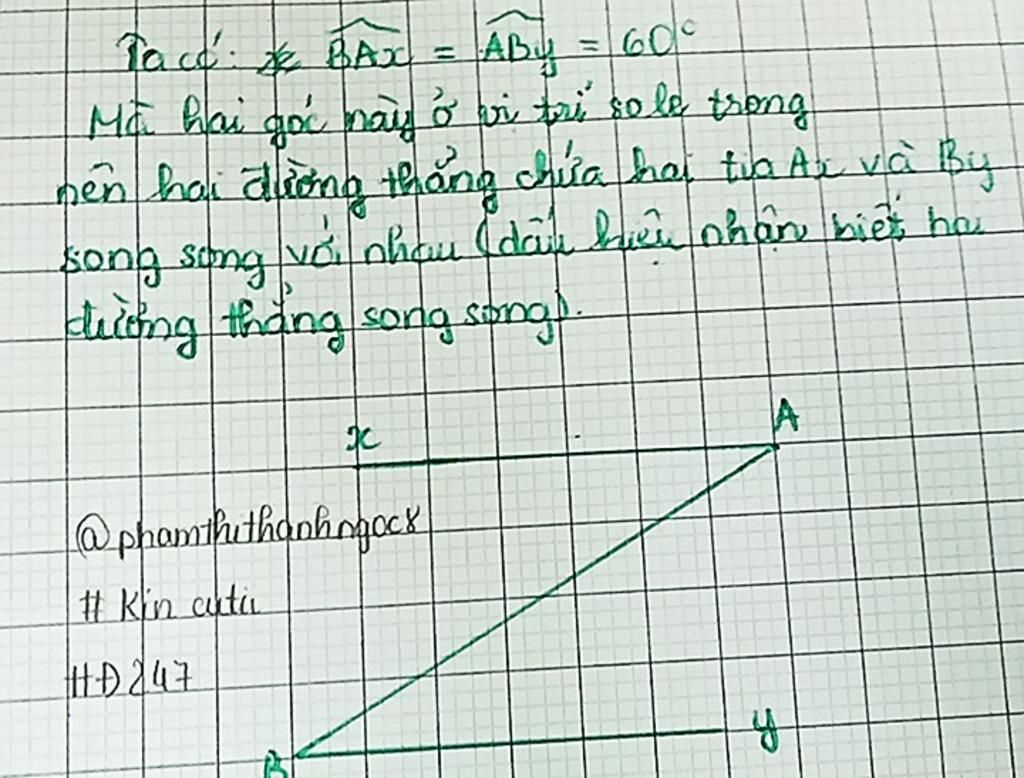 Ta có: BAx = ABy = 60°
Mà hai góc này ở vị trí so le trong
nên hai đường thẳng chứa hai tia Ax và By
song song với nhau (dấu hiệu nhận biết hai
đường thẳng song song).
x
A
@phamthithanhngoc8
# Kin cutii
HĐ247
B
y